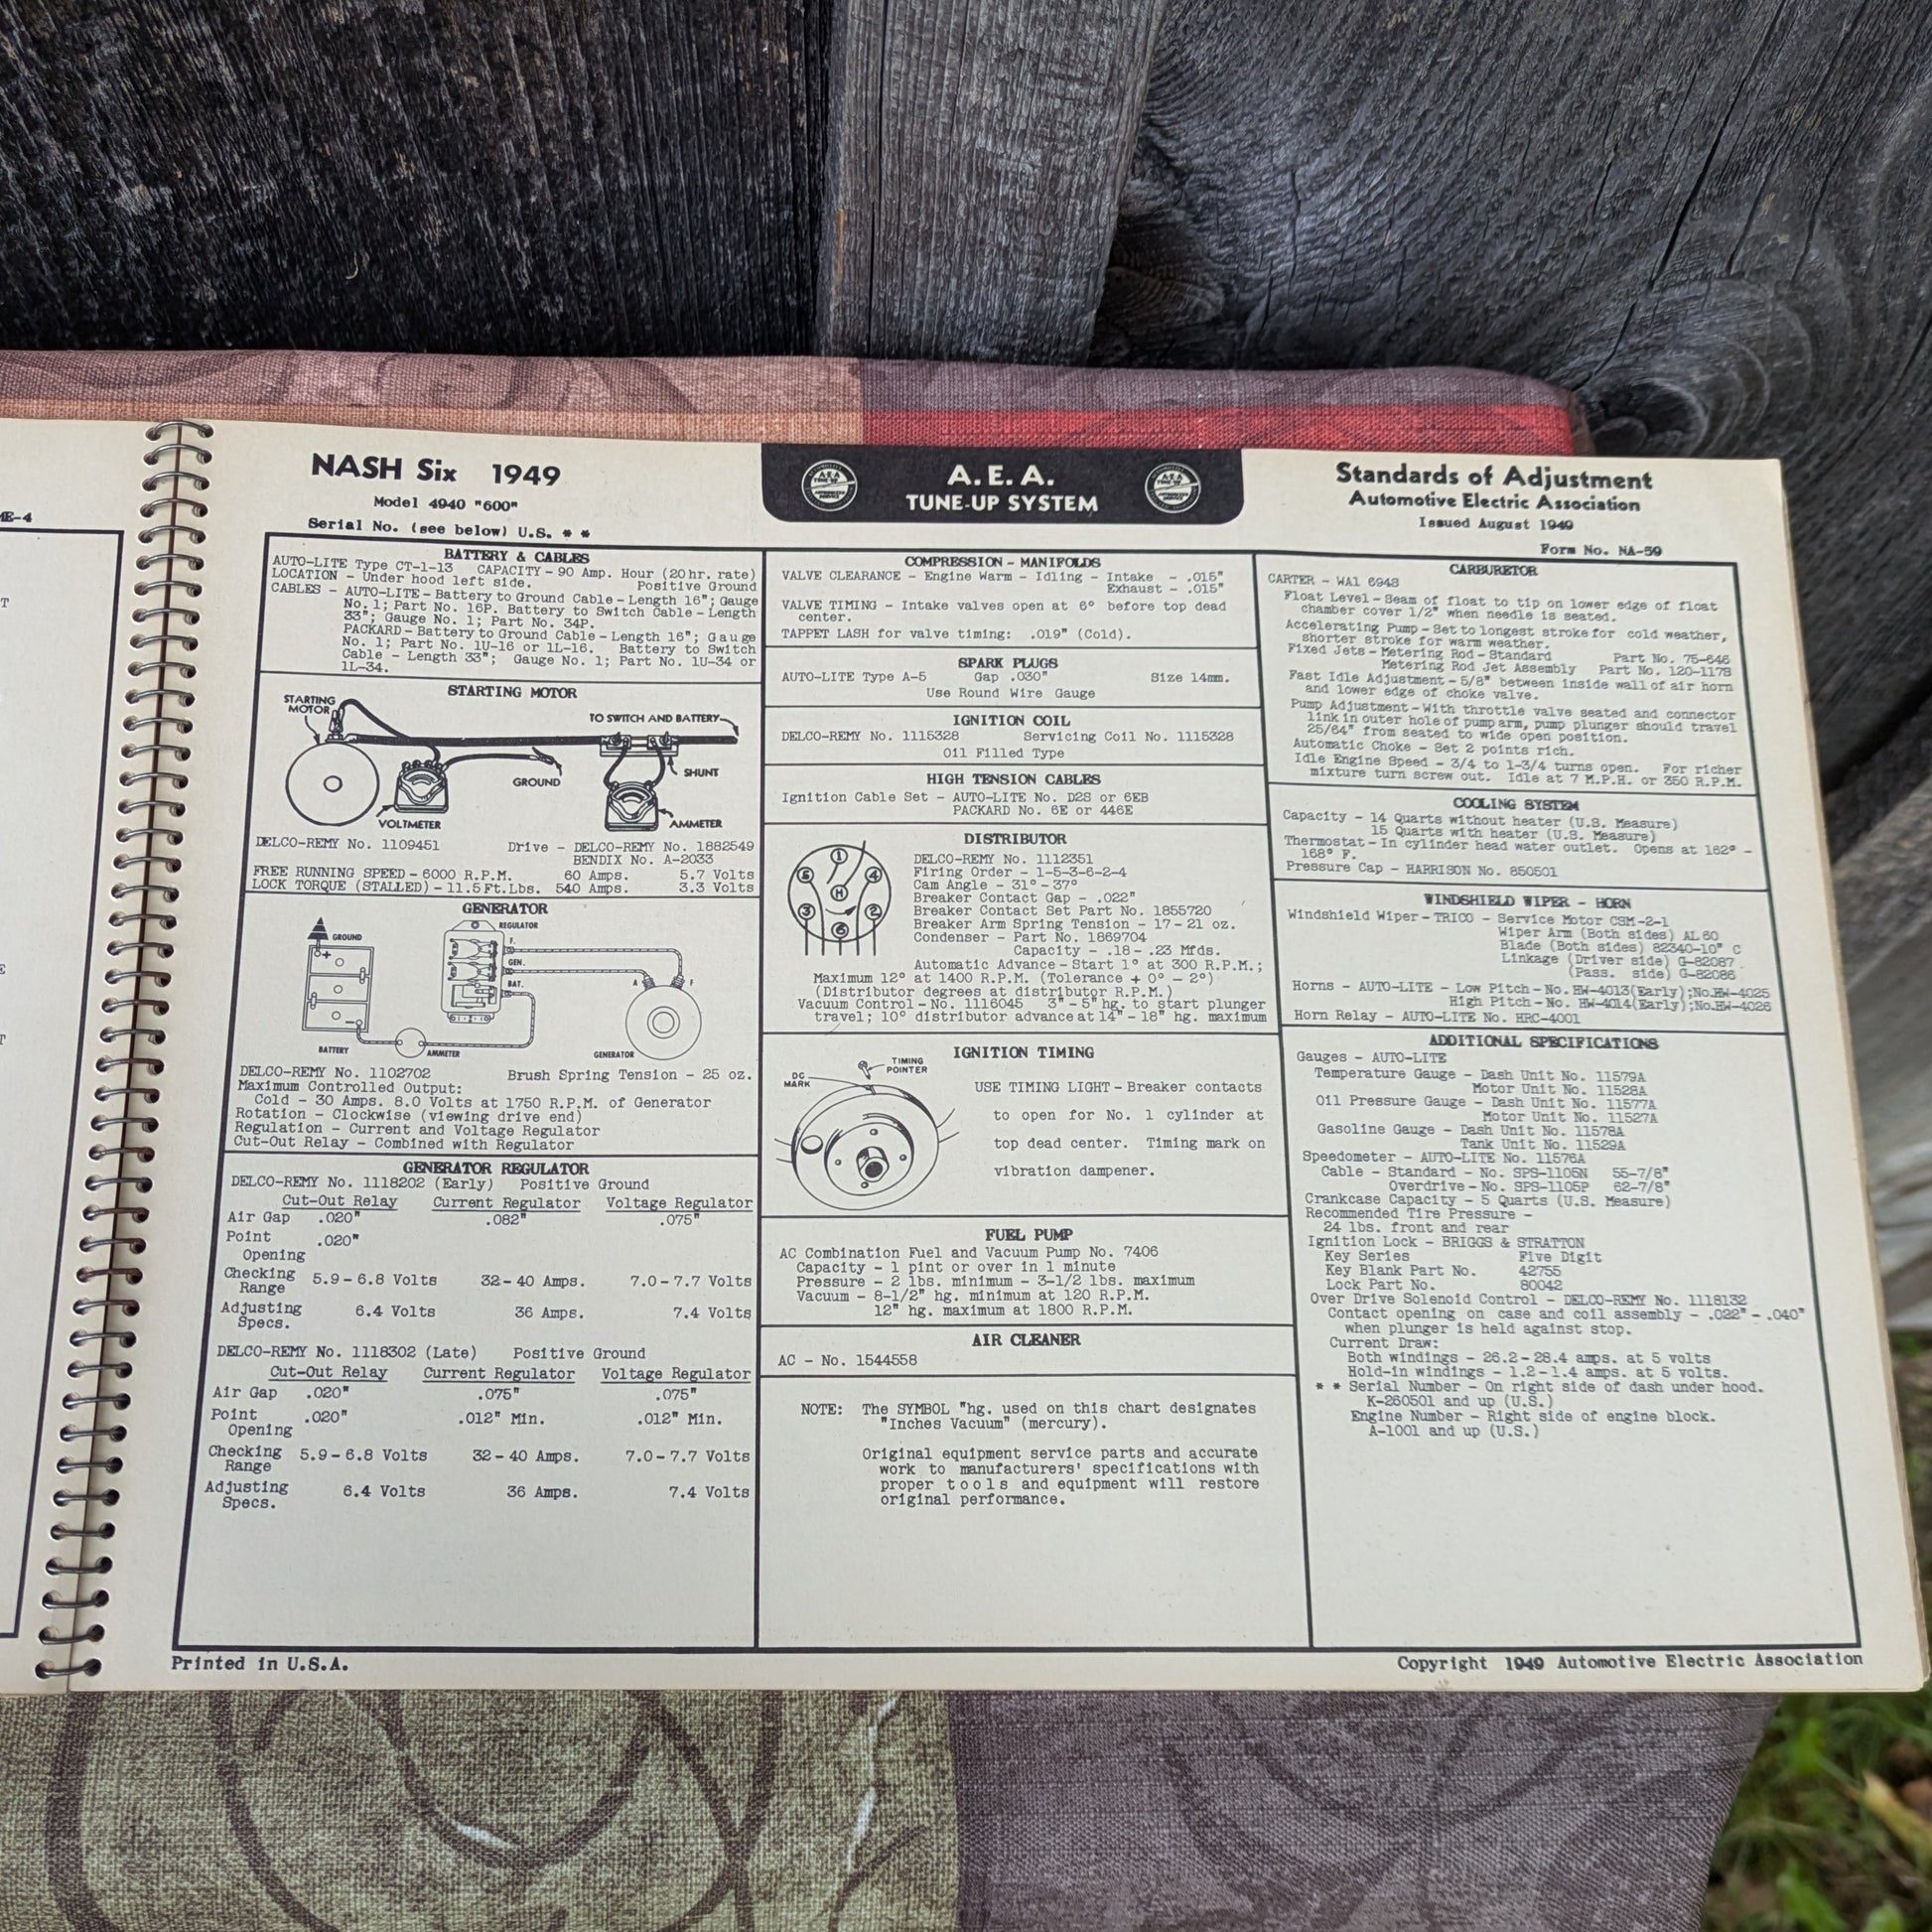 ME-4
T
E
T
NASH Six 1949
Model 4940 "600"
Serial No. (see below) U.S. * *
A.E.A.
TUNE-UP SYSTEM
Standards of Adjustment
Automotive Electric Association
Issued August 1949
Form No. NA-59
BATTERY & CABLES
AUTO-LITE Type CT-1-13 CAPACITY - 90 Amp. Hour (20 hr. rate)
LOCATION - Under hood left side. Positive Ground
CABLES - AUTO-LITE - Battery to Ground Cable - Length 16"; Gauge
No. 1; Part No. 16P. Battery to Switch Cable - Length
33"; Gauge No. 1; Part No. 34P.
PACKARD - Battery to Ground Cable - Length 16"; Gauge
No. 1; Part No. 1U-16 or 1L-16. Battery to Switch
Cable - Length 33"; Gauge No. 1; Part No. 1U-34 or
1L-34.
STARTING MOTOR
STARTING
MOTOR
TO SWITCH AND BATTERY
GROUND
SHUNT
VOLTMETER
AMMETER
DELCO-REMY No. 1109451 Drive - DELCO-REMY No. 1882549
BENDIX No. A-2033
FREE RUNNING SPEED - 6000 R.P.M. 60 Amps. 5.7 Volts
LOCK TORQUE (STALLED) - 11.5 Ft.Lbs. 540 Amps. 3.3 Volts
GENERATOR
GROUND
REGULATOR
F.
GEN.
BAT.
A
F
BATTERY
AMMETER
GENERATOR
DELCO-REMY No. 1102702 Brush Spring Tension - 25 oz.
Maximum Controlled Output:
Cold - 30 Amps. 8.0 Volts at 1750 R.P.M. of Generator
Rotation - Clockwise (viewing drive end)
Regulation - Current and Voltage Regulator
Cut-Out Relay - Combined with Regulator
GENERATOR REGULATOR
DELCO-REMY No. 1118202 (Early) Positive Ground
Cut-Out Relay Current Regulator Voltage Regulator
Air Gap .020" .082" .075"
Point .020"
Opening
Checking 5.9 - 6.8 Volts 32 - 40 Amps. 7.0 - 7.7 Volts
Range
Adjusting 6.4 Volts 36 Amps. 7.4 Volts
Specs.
DELCO-REMY No. 1118302 (Late) Positive Ground
Cut-Out Relay Current Regulator Voltage Regulator
Air Gap .020" .075" .075"
Point .020" .012" Min. .012" Min.
Opening
Checking 5.9 - 6.8 Volts 32 - 40 Amps. 7.0 - 7.7 Volts
Range
Adjusting 6.4 Volts 36 Amps. 7.4 Volts
Specs.
COMPRESSION - MANIFOLDS
VALVE CLEARANCE - Engine Warm - Idling - Intake - .015"
Exhaust - .015"
VALVE TIMING - Intake valves open at 6° before top dead
center.
TAPPET LASH for valve timing: .019" (Cold).
SPARK PLUGS
AUTO-LITE Type A-5 Gap .030" Size 14mm.
Use Round Wire Gauge
IGNITION COIL
DELCO-REMY No. 1115328 Servicing Coil No. 1115328
Oil Filled Type
HIGH TENSION CABLES
Ignition Cable Set - AUTO-LITE No. D2S or 6EB
PACKARD No. 6E or 446E
DISTRIBUTOR
1
5
4
H
3
2
6
DELCO-REMY No. 1112351
Firing Order - 1-5-3-6-2-4
Cam Angle - 31° - 37°
Breaker Contact Gap - .022"
Breaker Contact Set Part No. 1855720
Breaker Arm Spring Tension - 17 - 21 oz.
Condenser - Part No. 1869704
Capacity - .18 - .23 Mfds.
Automatic Advance - Start 1° at 300 R.P.M.;
Maximum 12° at 1400 R.P.M. (Tolerance + 0° - 2°)
(Distributor degrees at distributor R.P.M.)
Vacuum Control - No. 1116045 3" - 5" hg. to start plunger
travel; 10° distributor advance at 14" - 18" hg. maximum
IGNITION TIMING
TIMING
POINTER
DC
MARK
USE TIMING LIGHT - Breaker contacts
to open for No. 1 cylinder at
top dead center. Timing mark on
vibration dampener.
FUEL PUMP
AC Combination Fuel and Vacuum Pump No. 7406
Capacity - 1 pint or over in 1 minute
Pressure - 2 lbs. minimum - 3-1/2 lbs. maximum
Vacuum - 8-1/2" hg. minimum at 120 R.P.M.
12" hg. maximum at 1800 R.P.M.
AIR CLEANER
AC - No. 1544558
NOTE: The SYMBOL "hg. used on this chart designates
"Inches Vacuum" (mercury).
Original equipment service parts and accurate
work to manufacturers' specifications with
proper tools and equipment will restore
original performance.
CARBURETOR
CARTER - WA1 694S
Float Level - Seam of float to tip on lower edge of float
chamber cover 1/2" when needle is seated.
Accelerating Pump - Set to longest stroke for cold weather,
shorter stroke for warm weather.
Fixed Jets - Metering Rod - Standard Part No. 75-646
Metering Rod Jet Assembly Part No. 120-117S
Fast Idle Adjustment - 5/8" between inside wall of air horn
and lower edge of choke valve.
Pump Adjustment - With throttle valve seated and connector
link in outer hole of pump arm, pump plunger should travel
25/64" from seated to wide open position.
Automatic Choke - Set 2 points rich.
Idle Engine Speed - 3/4 to 1-3/4 turns open. For richer
mixture turn screw out. Idle at 7 M.P.H. or 350 R.P.M.
COOLING SYSTEM
Capacity - 14 Quarts without heater (U.S. Measure)
15 Quarts with heater (U.S. Measure)
Thermostat - In cylinder head water outlet. Opens at 162° -
168° F.
Pressure Cap - HARRISON No. 850501
WINDSHIELD WIPER - HORN
Windshield Wiper - TRICO - Service Motor CSM-2-1
Wiper Arm (Both sides) AL 60
Blade (Both sides) 82340-10" C
Linkage (Driver side) G-82087
(Pass. side) G-82086
Horns - AUTO-LITE - Low Pitch - No. HW-4013(Early);No.HW-4025
High Pitch - No. HW-4014(Early);No.HW-4026
Horn Relay - AUTO-LITE No. HRC-4001
ADDITIONAL SPECIFICATIONS
Gauges - AUTO-LITE
Temperature Gauge - Dash Unit No. 11579A
Motor Unit No. 11528A
Oil Pressure Gauge - Dash Unit No. 11577A
Motor Unit No. 11527A
Gasoline Gauge - Dash Unit No. 11578A
Tank Unit No. 11529A
Speedometer - AUTO-LITE No. 11576A
Cable - Standard - No. SPS-1105N 55-7/8"
Overdrive - No. SPS-1105P 62-7/8"
Crankcase Capacity - 5 Quarts (U.S. Measure)
Recommended Tire Pressure -
24 lbs. front and rear
Ignition Lock - BRIGGS & STRATTON
Key Series Five Digit
Key Blank Part No. 42755
Lock Part No. 80042
Over Drive Solenoid Control - DELCO-REMY No. 1118132
Contact opening on case and coil assembly - .022" - .040"
when plunger is held against stop.
Current Draw:
Both windings - 26.2 - 28.4 amps. at 5 volts
Hold-in windings - 1.2 - 1.4 amps. at 5 volts.
* * Serial Number - On right side of dash under hood.
K-260501 and up (U.S.)
Engine Number - Right side of engine block.
A-1001 and up (U.S.)
Printed in U.S.A.
Copyright 1949 Automotive Electric Association